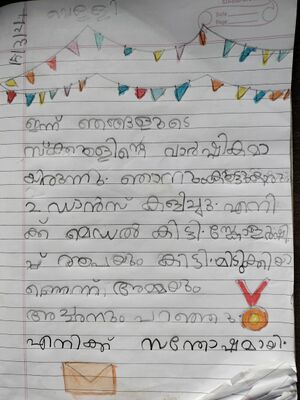 വെള്ളി
ഇന്ന് ഞങ്ങളുടെ
സ്കൂളിന്റെ വാർഷികമാ
യിരുന്നു. ഞാനും
2 ഡാൻസ് കളിച്ചു. എനി
ക്ക് മെഡൽ കിട്ടി.
കിട്ടി. മിടുക്കിയാ
ണെന്ന് അമ്മയും
അച്ഛനും പറഞ്ഞു.
എനിക്ക് സന്തോഷമായി.